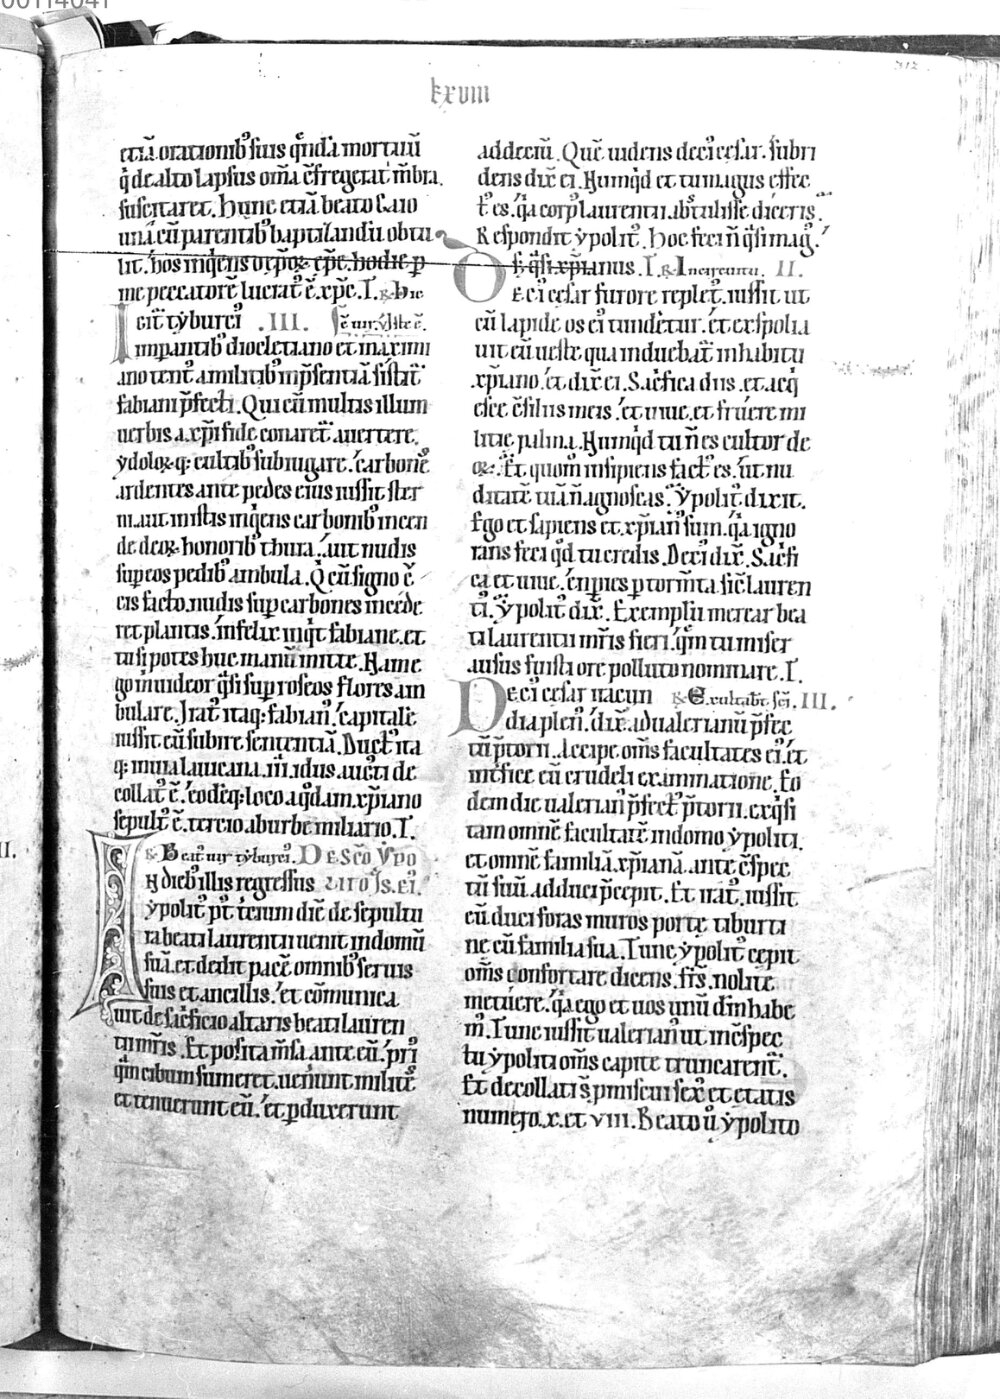 00114041
lxxviii
312
etiā orationibꝰ suis qndā mortuū
q̇ de alto lapsus oīa c̄fregerat m̄bra.
suscitaret. hunc etiā beato Gaio
unā cū parentibꝰ baptizandū obtu
lit. hos inq̇ens
me peccatorē lucratꝰ ē. xp̄c. I. ℟. hic
icit tyburcī .III.
Imꝑantibꝰ diocletiano et maximi
ano tentꝰ a militibꝰ in p̄sentiā sistit̃
fabiani p̄fecti. Qui cū multis illum
uerbis a xp̄i fide conaret̃ auertere.
ẏdoloꝝ q: cultibꝰ subiugare. carbonēs
ardentes ante pedes eius iussit ster
ni. aut inq̇ens carbonibꝰ incen
de deoꝝ honoribꝰ thura. aut nudis
suꝑ eos pedibꝰ ambula. Q̇ cū signo c̄
cis facto. nudis suꝑ carbones incede
ret plantis. infelix inq̇t fabiane. et
tu si potes huc manū mitte. Nam e
go m̄ uideor q̇si suꝑ roseos flores am
bulare. Iratꝰ itaq: fabianꝰ. capitalē
iussit eū subire sententiā. Ductꝰ ita
q: in uia lauicana. iii. idus. aug̃ti de
collatꝰ ē. eodēq: loco a q̇dam xp̄iano
sepultꝰ ē. tercio ab urbe miliario. I.
℟. Beatꝰ uir tyburcī. De scō ẏpo
N diebꝰ illis regressus lito ꝫs. eī.
ẏpolitꝰ pꝰ tercium diē de sepultu
ra beati laurentii uenit in domū
suā. et dedit pacē omnibꝰ seruis
suis et ancillis. et cōmunica
uit de sac̃ficio altaris beati lauren
tii mr̃is. Et posita m̄sa ante eū. pri
q̄m cibum sumeret. uenerunt militē
et tenuerunt eū. et ꝑduxerunt
ad deciū. Quē uidens decī cesar. subri
dens dix̃ ei. Numq̇d et tu magus effec
tꝰ es. q̇a corpꝰ laurentii abstulisse diceris.
Respondit ẏpolitꝰ. Hoc feci ñ q̇si magꝰ.
s; q̇si xp̄ianus. I. ℟. II.
Decī cesar furore repletꝰ. iussit ut
cū lapide os eī tunderet̃. et exspolia
uit eū ueste qua induebat̃ in habitu
xp̄iano. et dix̃ ei. Sac̃fica diis. et acq̇
esce c̄siliis meis. et uiue. et fruere mi
litie palma. Numq̇d tu ñ es cultor de
oꝝ. Et quom̄ insipiens factꝰ es. ut nu
ditatē tuā ñ agnoscas. ẏpolitꝰ dixit.
Ego et sapiens et xp̄ianꝰ sum. q̇a igno
rans feci q̇d tu credis. Decī dix̃. Sac̃fi
ca et uiue. et pies ꝑ torm̄ta sic̃ lauren
tī. ẏpolitꝰ dix̃. Exemplū merear bea
ti laurentii mr̃is fieri. q̄m tu miser
ausus fuisti ore polluto nominare. I.
Decī cesar iracun ℟. Exultabt̃ sc̄i. III.
dia plenꝰ. dix̃ ad ualerianū p̄fec
tū p̄torii. Accipe om̄s facultates eī. et
int̃fice eū crudeli examinatione. Eo
dem die ualerianꝰ p̄fectꝰ p̄torii. exq̇si
tam omnē facultatē in domo ẏpoliti.
et omnē familiā xp̄ianā. ante c̄spec
tū suū adduci p̄cepit. Et iratꝰ iussit
eū duci foras muros porte tiburti
ne cū familia sua. Tunc ẏpolitꝰ cepit
om̄s confortare dicens. fr̃s nolite
metuere. q̇a ego et uos unū dn̄m habe
mꝰ. Tunc iussit ualerianꝰ ut in c̄spec
tu ẏpoliti om̄s capite truncarent̃.
Et decollati s̄t ꝓmiscui sexꝰ et etatis
numero. x. et viii. Beato ū ẏpolito